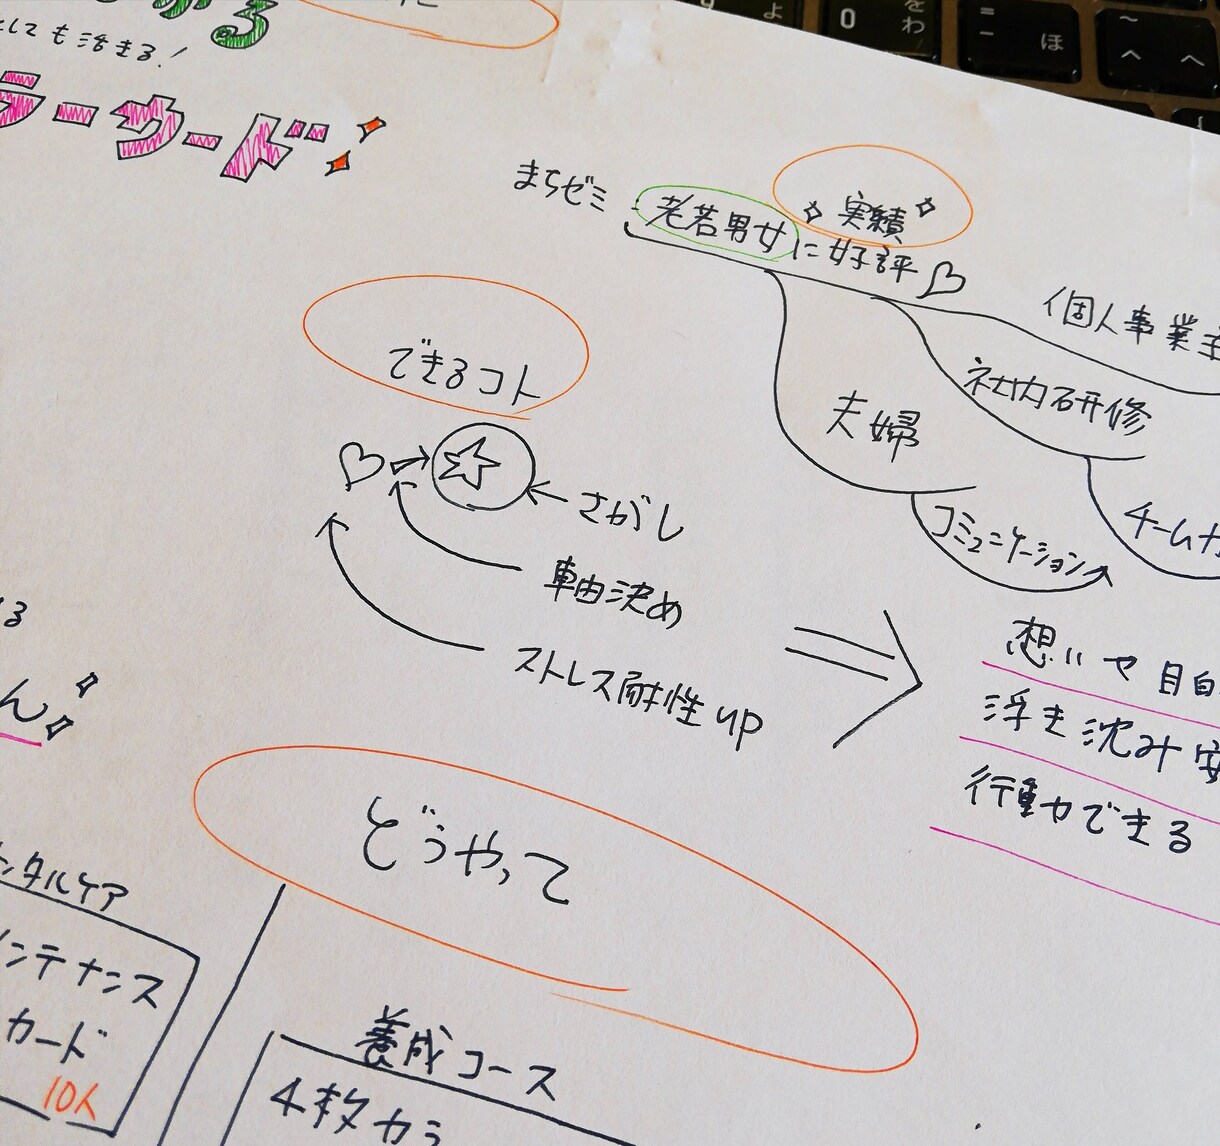 しても活きる！
ラーウード！
まちゼミ
実績
老若男女に好評♡
個人事業主
社内研修
夫婦
コミュニケーション
チームカ
できるコト
さがし
軸決め
ストレス耐性up
想いや目的
浮き沈み安
行動できる
る
ん
どうやって
ンタルケア
メンテナンス
カード
10人
養成コース
4枚カラ